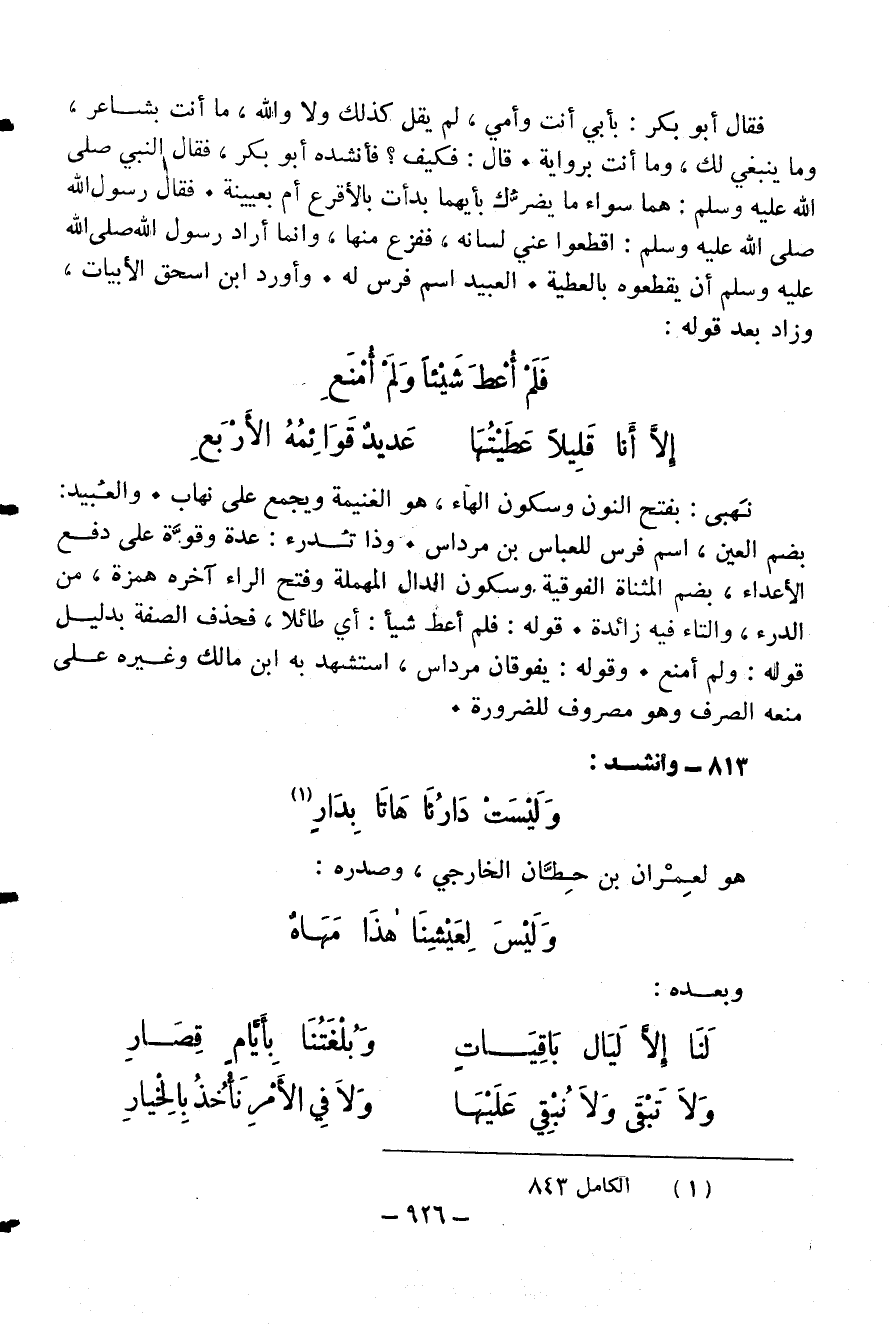 فقال أبو بكر : بأبي أنت وأمي ، لم يقل كذلك ولا والله ، ما أنت بشاعر ،
وما ينبغي لك ، وما أنت برواية • قال : فكيف ؟ فأنشده أبو بكر ، فقال النبي صلى
الله عليه وسلم : هما سواء ما يضرّك بأيهما بدأت بالأقرع أم بعيينة • فقال رسول الله
صلى الله عليه وسلم : اقطعوا عني لسانه ، ففزع منها ، وانما أراد رسول الله صلى الله
عليه وسلم أن يقطعوه بالعطية • العبيد اسم فرس له • وأورد ابن اسحق الأبيات ،
وزاد بعد قوله :
فَلَمْ أُعْطَ شَيْئاً وَلَمْ أُمْنَعِ
إِلاَّ أَنا قَلِيلاً عَطَيْتُهَا عَديدُ قَوَائِمُهُ الأَرْبَعِ
نَهبى : بفتح النون وسكون الهاء ، هو الغنيمة ويجمع على نهاب • والعُبيد:
بضم العين ، اسم فرس للعباس بن مرداس • وذا تُدرء : عدة وقوّة على دفع
الأعداء ، بضم المثناة الفوقية وسكون الدال المهملة وفتح الراء آخره همزة ، من
الدرء ، والتاء فيه زائدة • قوله : فلم أعط شيأ : أي طائلا ، فحذف الصفة بدليل
قوله : ولم أمنع • وقوله : يفوقان مرداس ، استشهد به ابن مالك وغيره على
منعه الصرف وهو مصروف للضرورة •
٨١٣ – وأنشد :
وَلَيْسَتْ دَارُنَا هَاتَا بِدَارِ (١)
هو لعِمْران بن حِطّان الخارجي ، وصدره :
وَلَيْسَ لِعَيْشِنَا هٰذَا مَهَاهٌ
وبعده :
لَنَا إِلاَّ لَيَالٍ بَاقِيَاتٍ وَبُلْغَتُنَا بِأَيَّامٍ قِصَارِ
وَلاَ تَبْقَى وَلاَ نُبْقِي عَلَيْهَا وَلاَ فِي الأَمْرِ نَأْخُذُ بِالخِيارِ
(١) الكامل ٨٤٣
– ٩٢٦ –